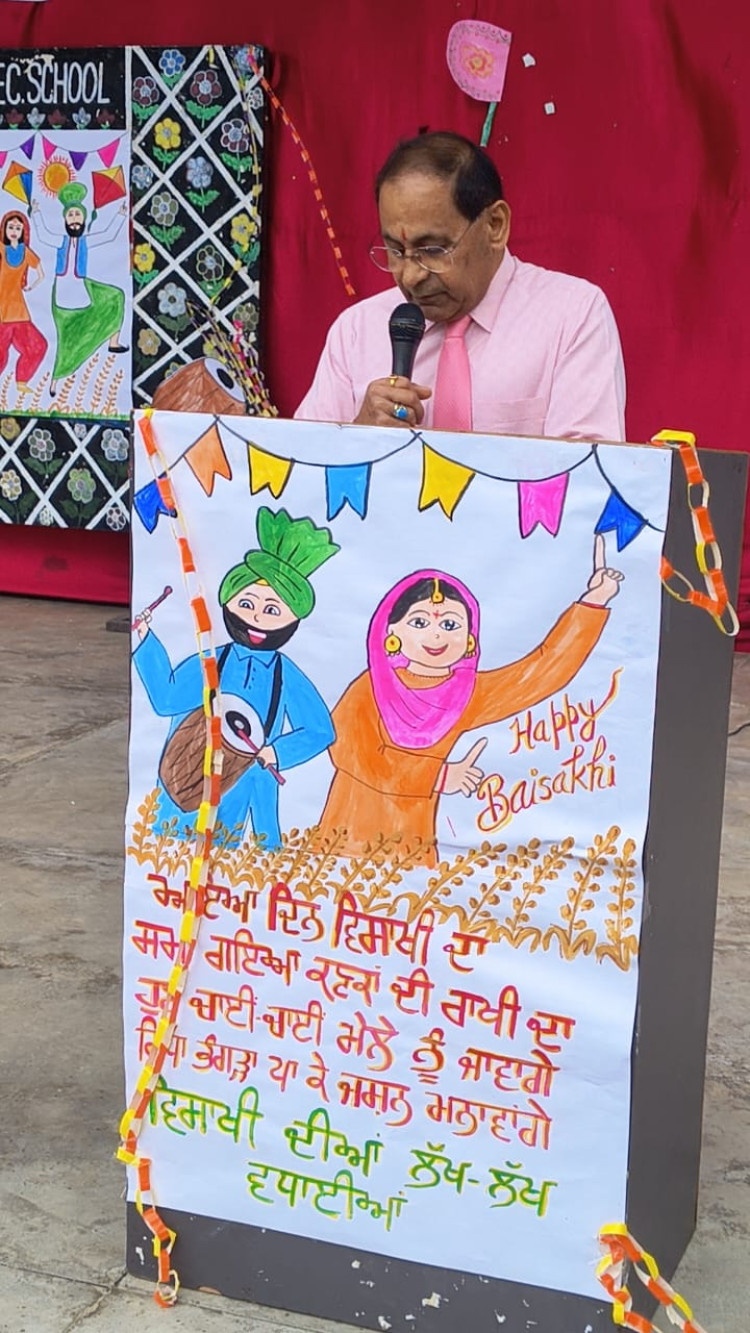 EC. SCHOOL
Happy
Baisakhi
ਦਿਨ ਵਿਸਾਖੀ ਦਾ
ਗਇਆ ਕਣਕਾਂ ਦੀ ਰਾਖੀ ਦਾ
ਹੁਣ ਚਾਈਂ-ਚਾਈਂ ਮੇਲੇ ਨੂੰ ਜਾਵਾਂਗੇ
ਭੰਗੜਾ ਪਾ ਕੇ ਜਸ਼ਨ ਮਨਾਵਾਂਗੇ
ਵਿਸਾਖੀ ਦੀਆਂ ਲੱਖ-ਲੱਖ
ਵਧਾਈਆਂ